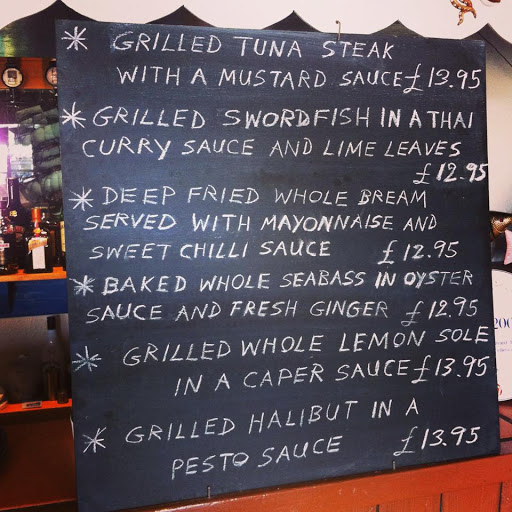 * GRILLED TUNA STEAK
WITH A MUSTARD SAUCE £13.95
* GRILLED SWORDFISH IN A THAI
CURRY SAUCE AND LIME LEAVES
£12.95
* DEEP FRIED WHOLE BREAM
SERVED WITH MAYONNAISE AND
SWEET CHILLI SAUCE £12.95
* BAKED WHOLE SEABASS IN OYSTER
SAUCE AND FRESH GINGER £12.95
* GRILLED WHOLE LEMON SOLE
IN A CAPER SAUCE £13.95
* GRILLED HALIBUT IN A
PESTO SAUCE £13.95